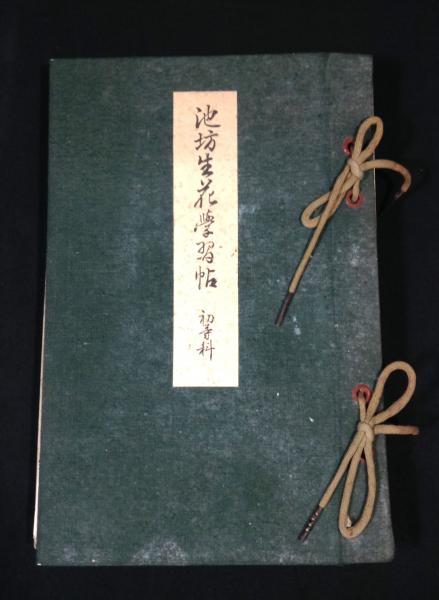 池坊生花學習帖
初等科